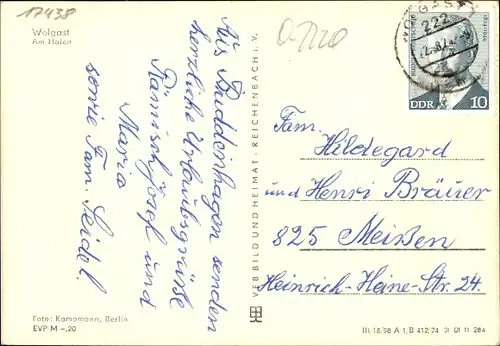 17438
Wolgast
Am Hafen
O-7720
Aus Buddenhagen senden
herzliche Urlaubsgrüße
und
Maria
sowie Fam. Seidel.
VEB BILD UND HEIMAT · REICHENBACH I. V.
WOLGAST
222
DDR 10
Fam.
Hildegard
und Henri Bräuer
825 Meißen
Heinrich-Heine-Str. 24.
Foto: Kampmann, Berlin
EVP M -,20
III/18/98 A 1/B 412/74 01 01 11 264